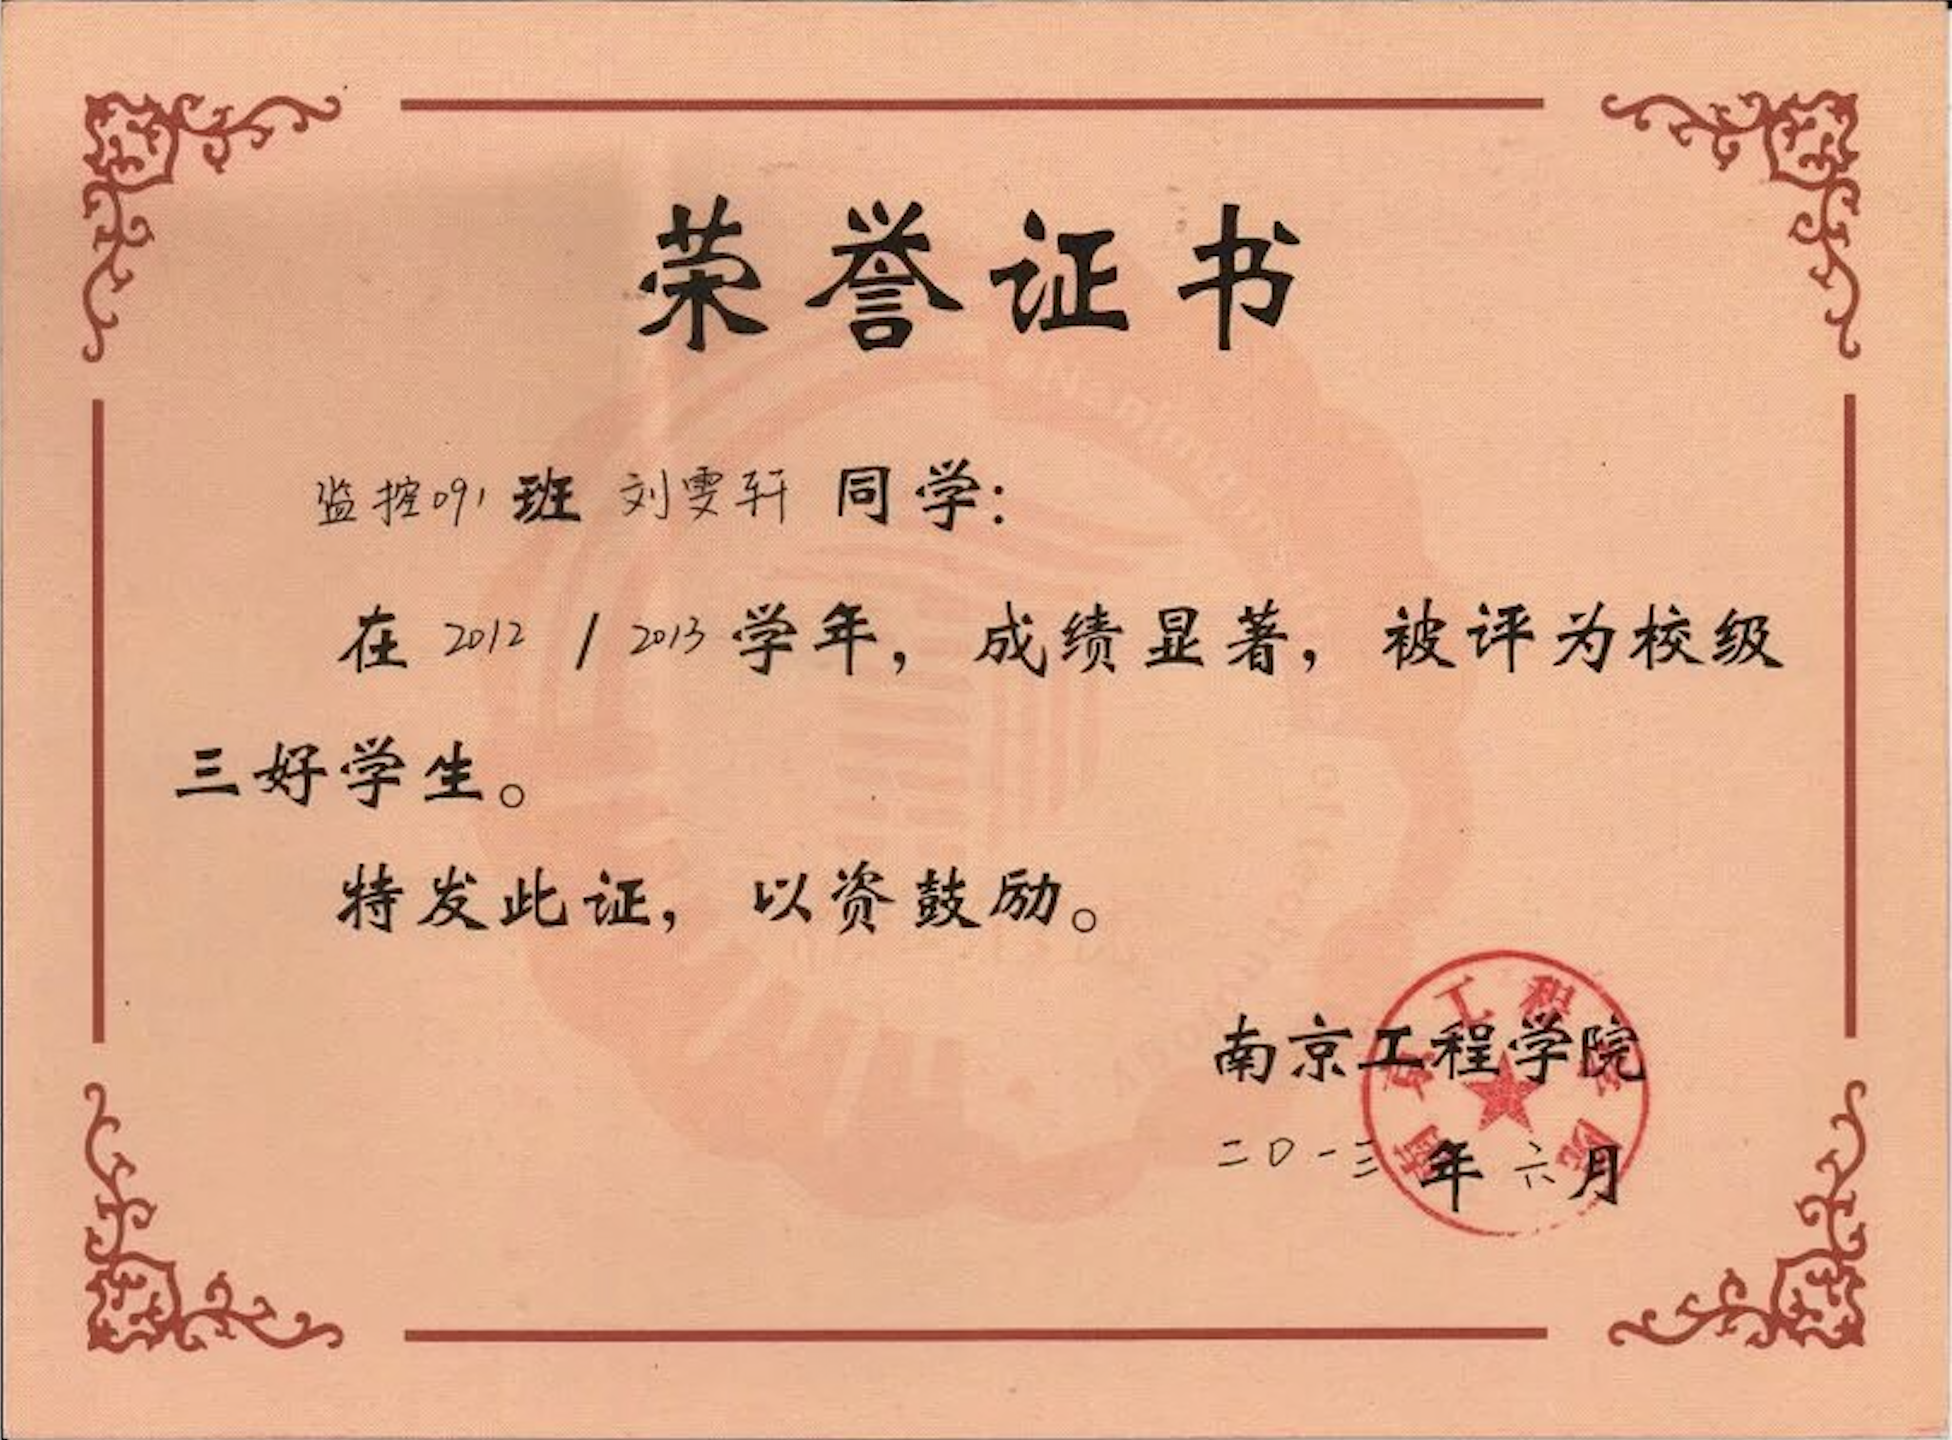 荣誉证书
监控091班 刘雯轩 同学：
在 2012 / 2013 学年，成绩显著，被评为校级
三好学生。
特发此证，以资鼓励。
南京工程学院
二〇一三年六月
南京工程学院